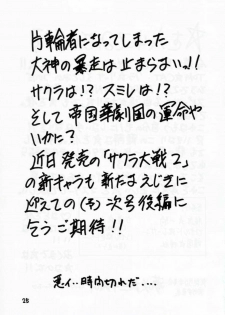 片輪者になってしまった
大神の暴走は止まらないッ!!
サクラは!? スミレは!?
そして帝国華劇団の運命や
いかに?
近日発売の「サクラ大戦2」
の新キャラも新たなえじきに
迎えての(そ)次号後編に
乞うご期待!!
悪ィ‥時間切れだ....
28